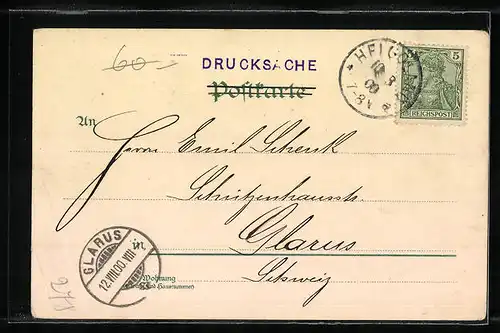 60
DRUCKSACHE
Postkarte
HELGOLAND
10 8
00
7-8V
5
REICHSPOST
An
Herrn Emil Schenk
Schützenhausstr.
in Glarus
Schweiz
GLARUS
12.VIII.00.VIII
Wohnung